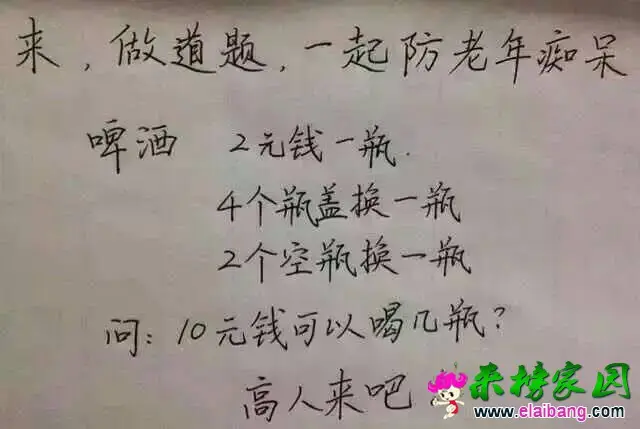 来，做道题，一起防老年痴呆
啤酒 2元钱一瓶.
4个瓶盖换一瓶
2个空瓶换一瓶
问：10元钱可以喝几瓶？
高人来吧
来榜家园
www.elaibang.com